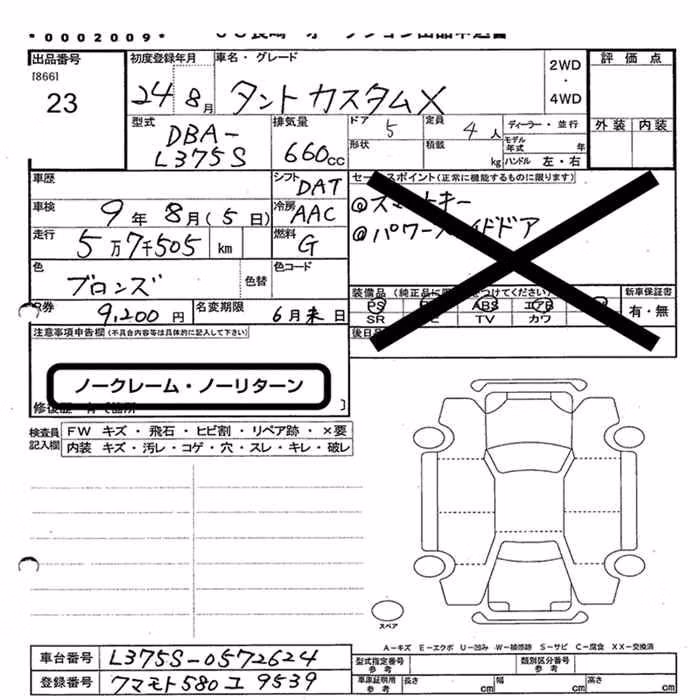 *0002009*
出品番号
[866]
23
初度登録年月
24年8月
車名・グレード
タントカスタムX
2WD
・
4WD
評価点
外装 内装
型式
DBA-
L375S
排気量
660cc
ドア 5
定員 4人
ディーラー・並行
形状
積載 kg
モデル年式 年
ハンドル 左・右
車歴
シフト DAT
車検 9年8月(5日)
冷房 AAC
走行 5万7千505 km
燃料 G
色 ブロンズ
色替
色コード
9,200円
名変期限 6月末日
セールスポイント(正常に機能するものに限ります)
◎スマートキー
◎パワースライドドア
装備品
新車保証書
有・無
PS ABS エアB
SR TV カワ
注意事項申告欄(不具合内容等は具体的に記入して下さい)
ノークレーム・ノーリターン
検査員記入欄
FW キズ・飛石・ヒビ割・リペア跡・×要
内装 キズ・汚レ・コゲ・穴・スレ・キレ・破レ
スペア
A-キズ E-エクボ U-凹み W-補修跡 S-サビ C-腐食 XX-交換済
車台番号 L375S-0572624
登録番号 クマモト580ユ9539
型式指定番号 参考
類別区分番号 参考
車庫証明用 参考 長さ cm 幅 cm 高さ cm